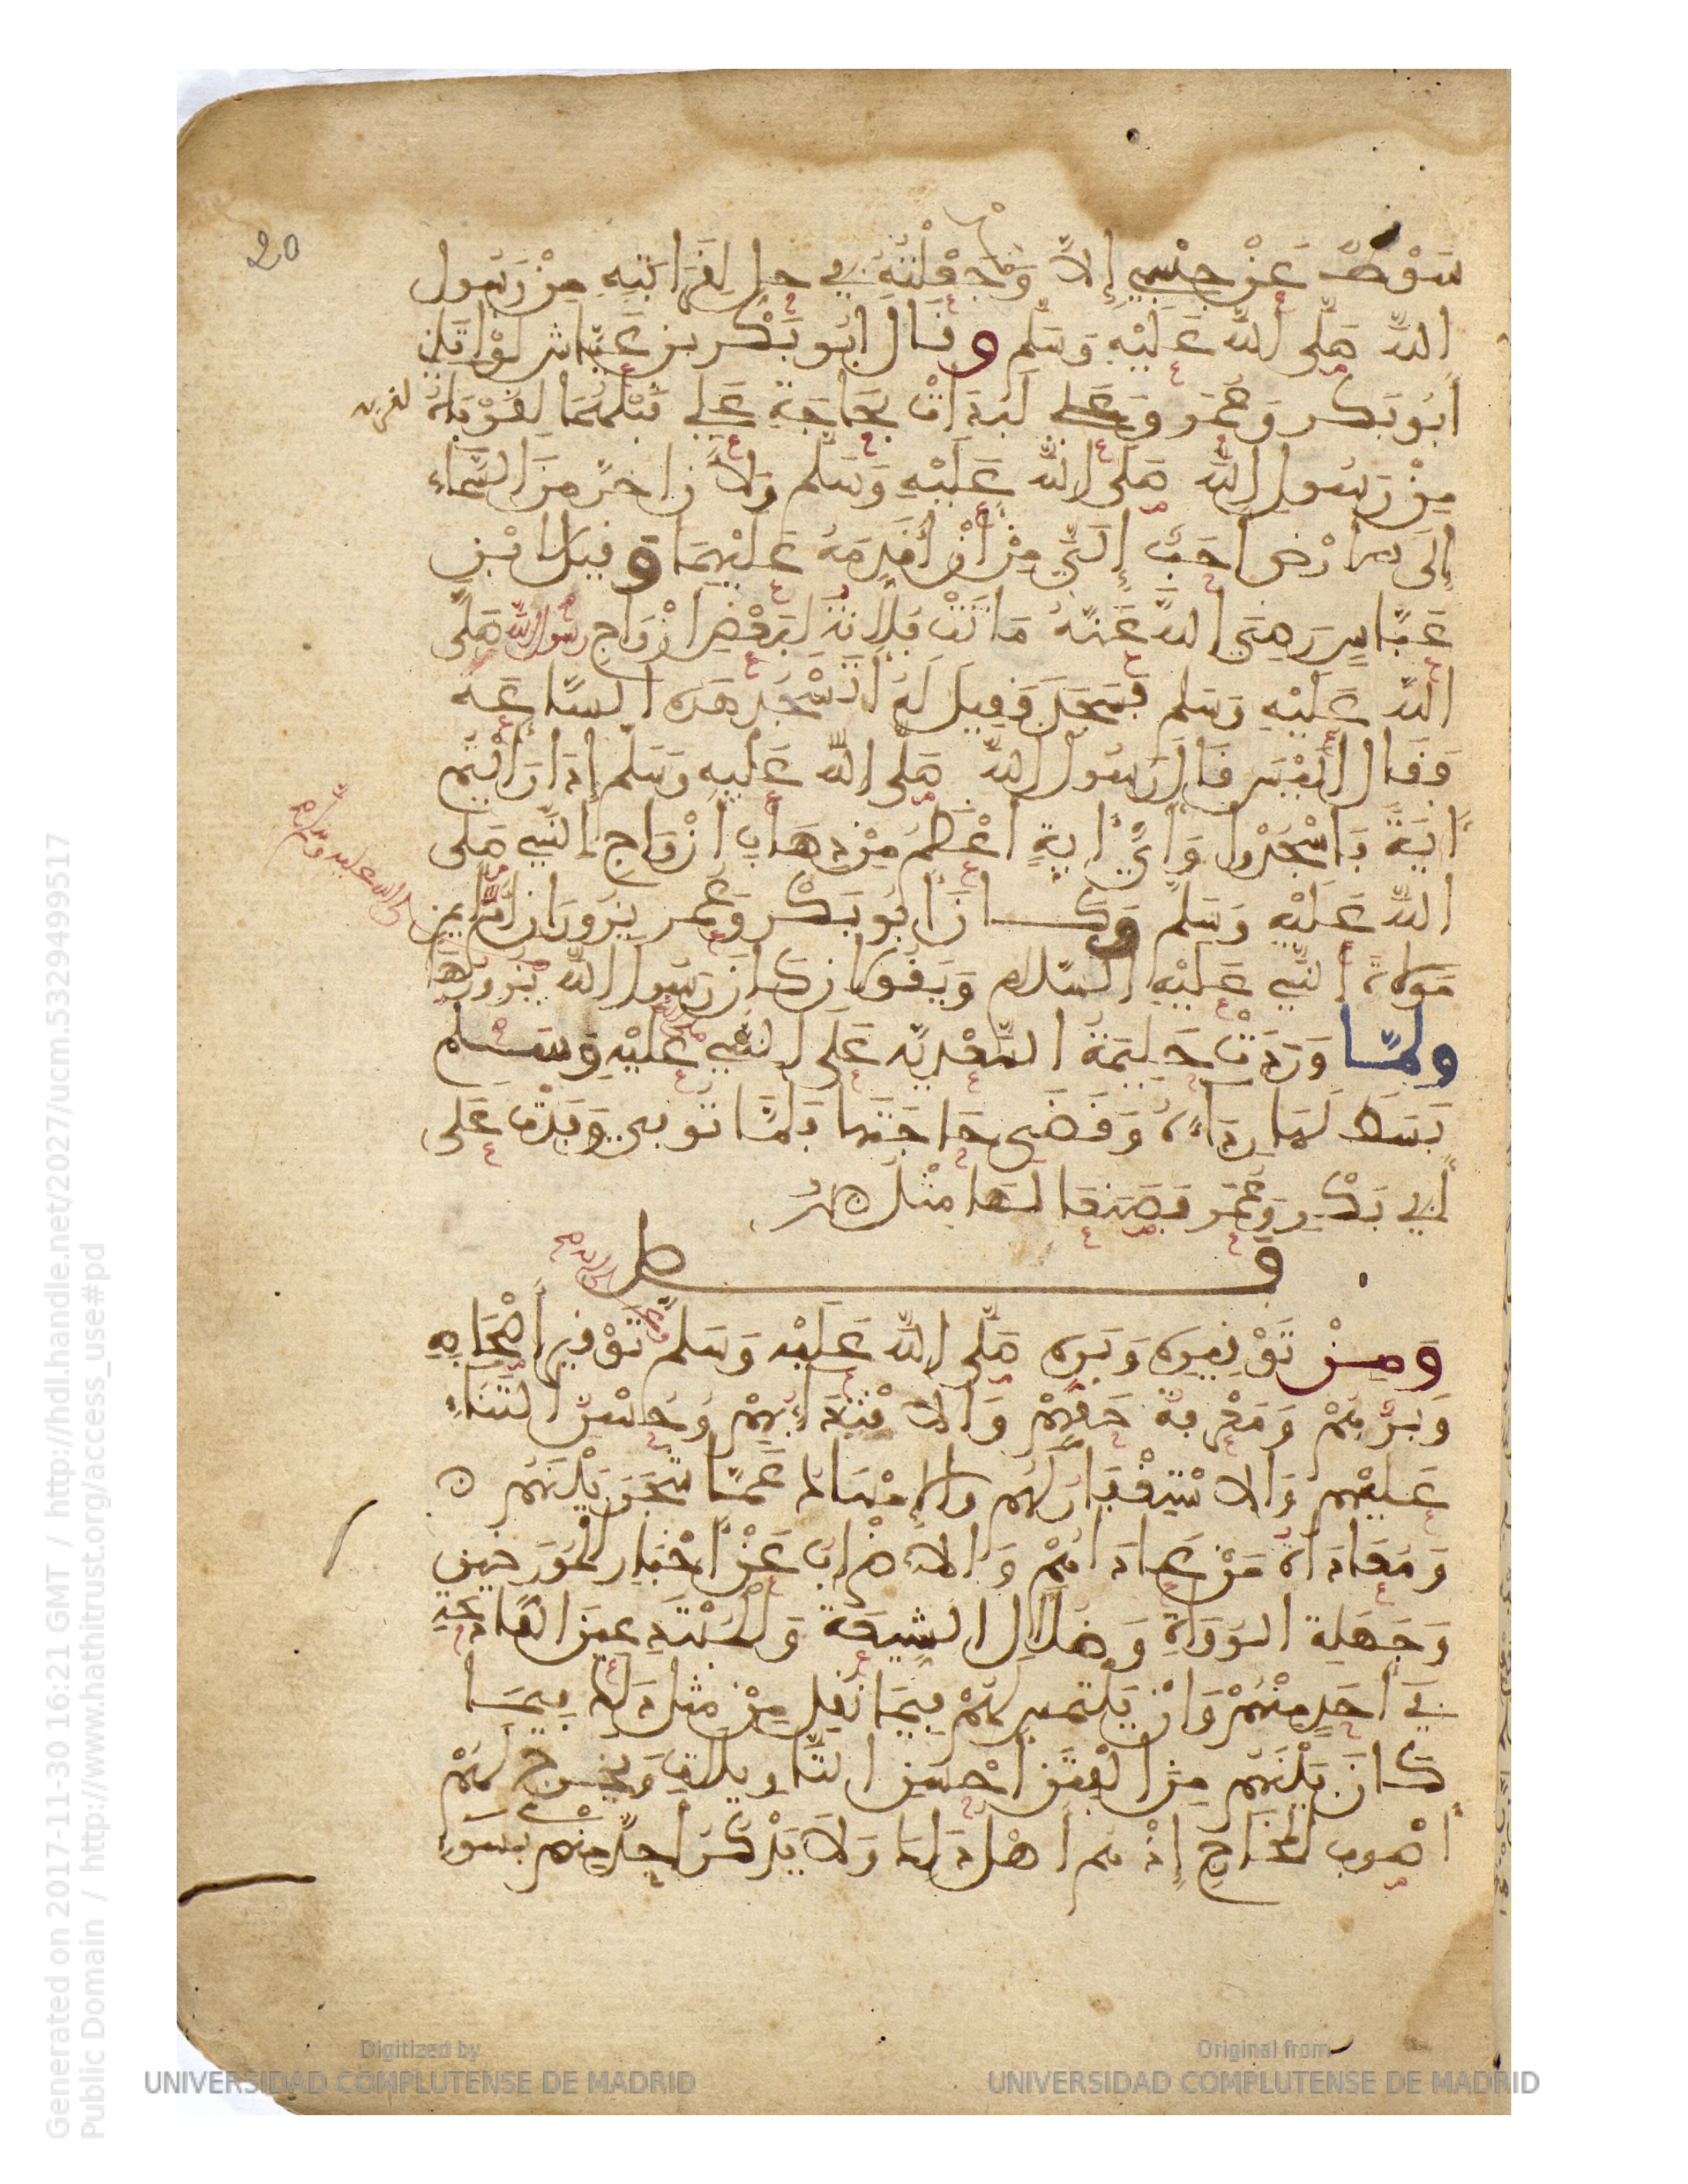 20
سَوْطٌ عَنْ جِسْمِي إِلاَّ وَجَعَلْتُهُ فِي حِلٍّ لِقَرَابَتِهِ مِنْ رَسُولِ
اللهِ صَلَّى اللهُ عَلَيْهِ وَسَلَّم وقَال أبُو بَكْر بن عَيَّاش لَوْ أتَانِي
أبُو بَكر وَعُمَر وَعَلي لَبَدَأتُ بحَاجَةِ عَلِي قَبْلَهُمَا لِقَرابته
مِنْ رَسُولِ اللهِ صَلَى اللهُ عَلَيْهِ وَسَلم وَلأَن أَخِرَّ مِنَ السَّمَاءِ
إلَى الارْضِ أحَبُّ إِلَيَّ مِنْ أنْ أُقَدِّمَهُ عَلَيْهِمَا وَقِيل لابْنِ
عَبَّاسٍ رَضِيَ اللهُ عَنْهُ مَاتَتْ فُلاَنَة لِبَعْضِ أزْوَاجِ رسُول الله صَلَّى
اللهُ عَلَيْهِ وَسَلم فَسَجَدَ فَقِيلَ لَهُ أتَسْجُدُ هَذِه السَّاعَة
فَقَال ألَيْسَ قَالَ رَسُول اللهِ صَلَى اللهُ عَلَيهِ وَسَلَّم إِذَا رَأيْتُم
آيَةً فَاسْجُدُوا وَأيُّ آيةٍ أعْظَمُ مِنْ ذِهَابِ أزْوَاجِ النَّبِي صَلى
اللهُ عَلَيْهِ وَسَلم وَكَانَ أبُو بَكْر وَعُمَر يَزُورَانِ أُمَّ أيمن
مَوْلاةَ النَّبِي عَلَيْهِ السَّلام وَيَقُولان كَانَ رَسُول الله يَزُورُهَا
ولمَّا وَرَدَتْ حَلِيمَةُ السَّعْدِيَّة عَلَى النَّبِي عَلَيْهِ وَسَلم
بَسَطَ لَهَا رِدَاءَهُ وَقَضَى حَاجَتَهَا فَلَمَّا تُوفي وَفَدَتْ عَلَى
أَبِي بَكْرٍ وَعُمَر فَصَنَعَا لَهَا مِثْل
فصل
وَمِنْ تَوْقِيرِهِ وَبِرِّه صَلَّى اللهُ عَلَيْهِ وَسَلم تَوْقِيرُ أَصْحَابِهِ
وَبِرُّهُمْ وَمَعْرِفَة حَقِّهِمْ وَالاقْتِدَاءُ بِهِمْ وَحُسْنُ الثَّنَاءِ
عَلَيْهِم وَالاسْتِغْفَارُ لَهُم وَالإِمْسَاكُ عَمَّا شَجَرَ بَيْنَهُم
وَمُعَادَاةُ مَنْ عَادَاهُمْ وَالاضْرَابُ عَنْ أخْبَارِ المُؤَرِّخِينَ
وَجَهَلَةِ الرُّوَاةِ وَضُلاَّلِ الشِّيعَةِ وَالمُبْتَدِعِينَ القَادِحَةِ
فِي أحَدٍ مِنْهُمْ وَأنْ يُلْتَمَسَ لَهُمْ فِيمَا نُقِل مِنْ مِثْل ذَلِكَ فِيمَا
كَانَ بَيْنَهُم مِنَ الْفِتَنِ أحْسَن التَّأويلات وَيُخَرَّج لَهُمْ
أصْوَب المَخَارِجِ إِذْ هُم أهْل ذَلِكَ وَلاَ يُذْكَرُ أحَدٌ مِنْهُم بِسُوءٍ
Generated on 2017-11-30 16:21 GMT / http://hdl.handle.net/2027/ucm.5329499517
Public Domain / http://www.hathitrust.org/access_use#pd
Digitized by
UNIVERSIDAD COMPLUTENSE DE MADRID
Original from
UNIVERSIDAD COMPLUTENSE DE MADRID